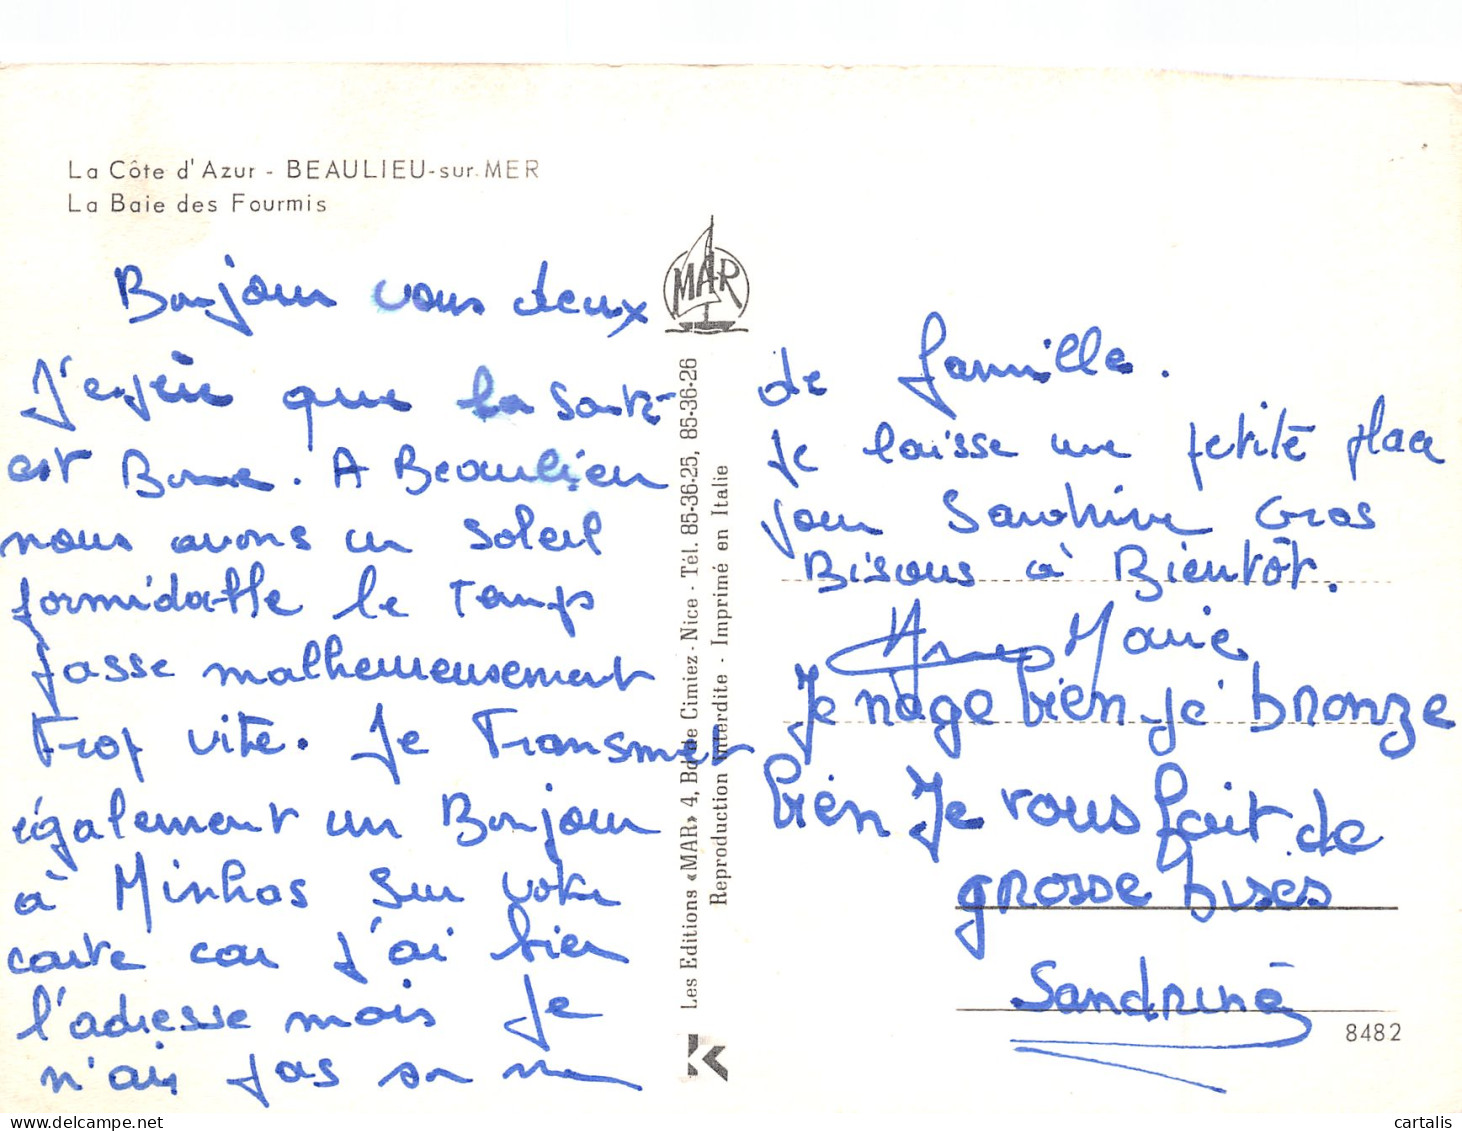 La Côte d'Azur - BEAULIEU-sur-MER
La Baie des Fourmis
Bonjour vous deux
J'espère que la santé
est Bonne. A Beaulieu
nous avons un soleil
formidable le Temps
passe malheureusement
Trop vite. Je Transmet
également un Bonjour
à Minhas sur votre
carte car j'ai bien
l'adresse mais je
n'ais pas son nom
de famille.
Je laisse une petite place
pour Sandrine Gros
Bisous à Bientôt.
Marie
Je nage bien je bronze
bien Je vous fait de
grosse bises
Sandrine
MAR
Les Editions «MAR» 4, Bd de Cimiez - Nice - Tél. 85-36-25, 85-36-26
Reproduction interdite - Imprimé en Italie
K
8482
cartalis